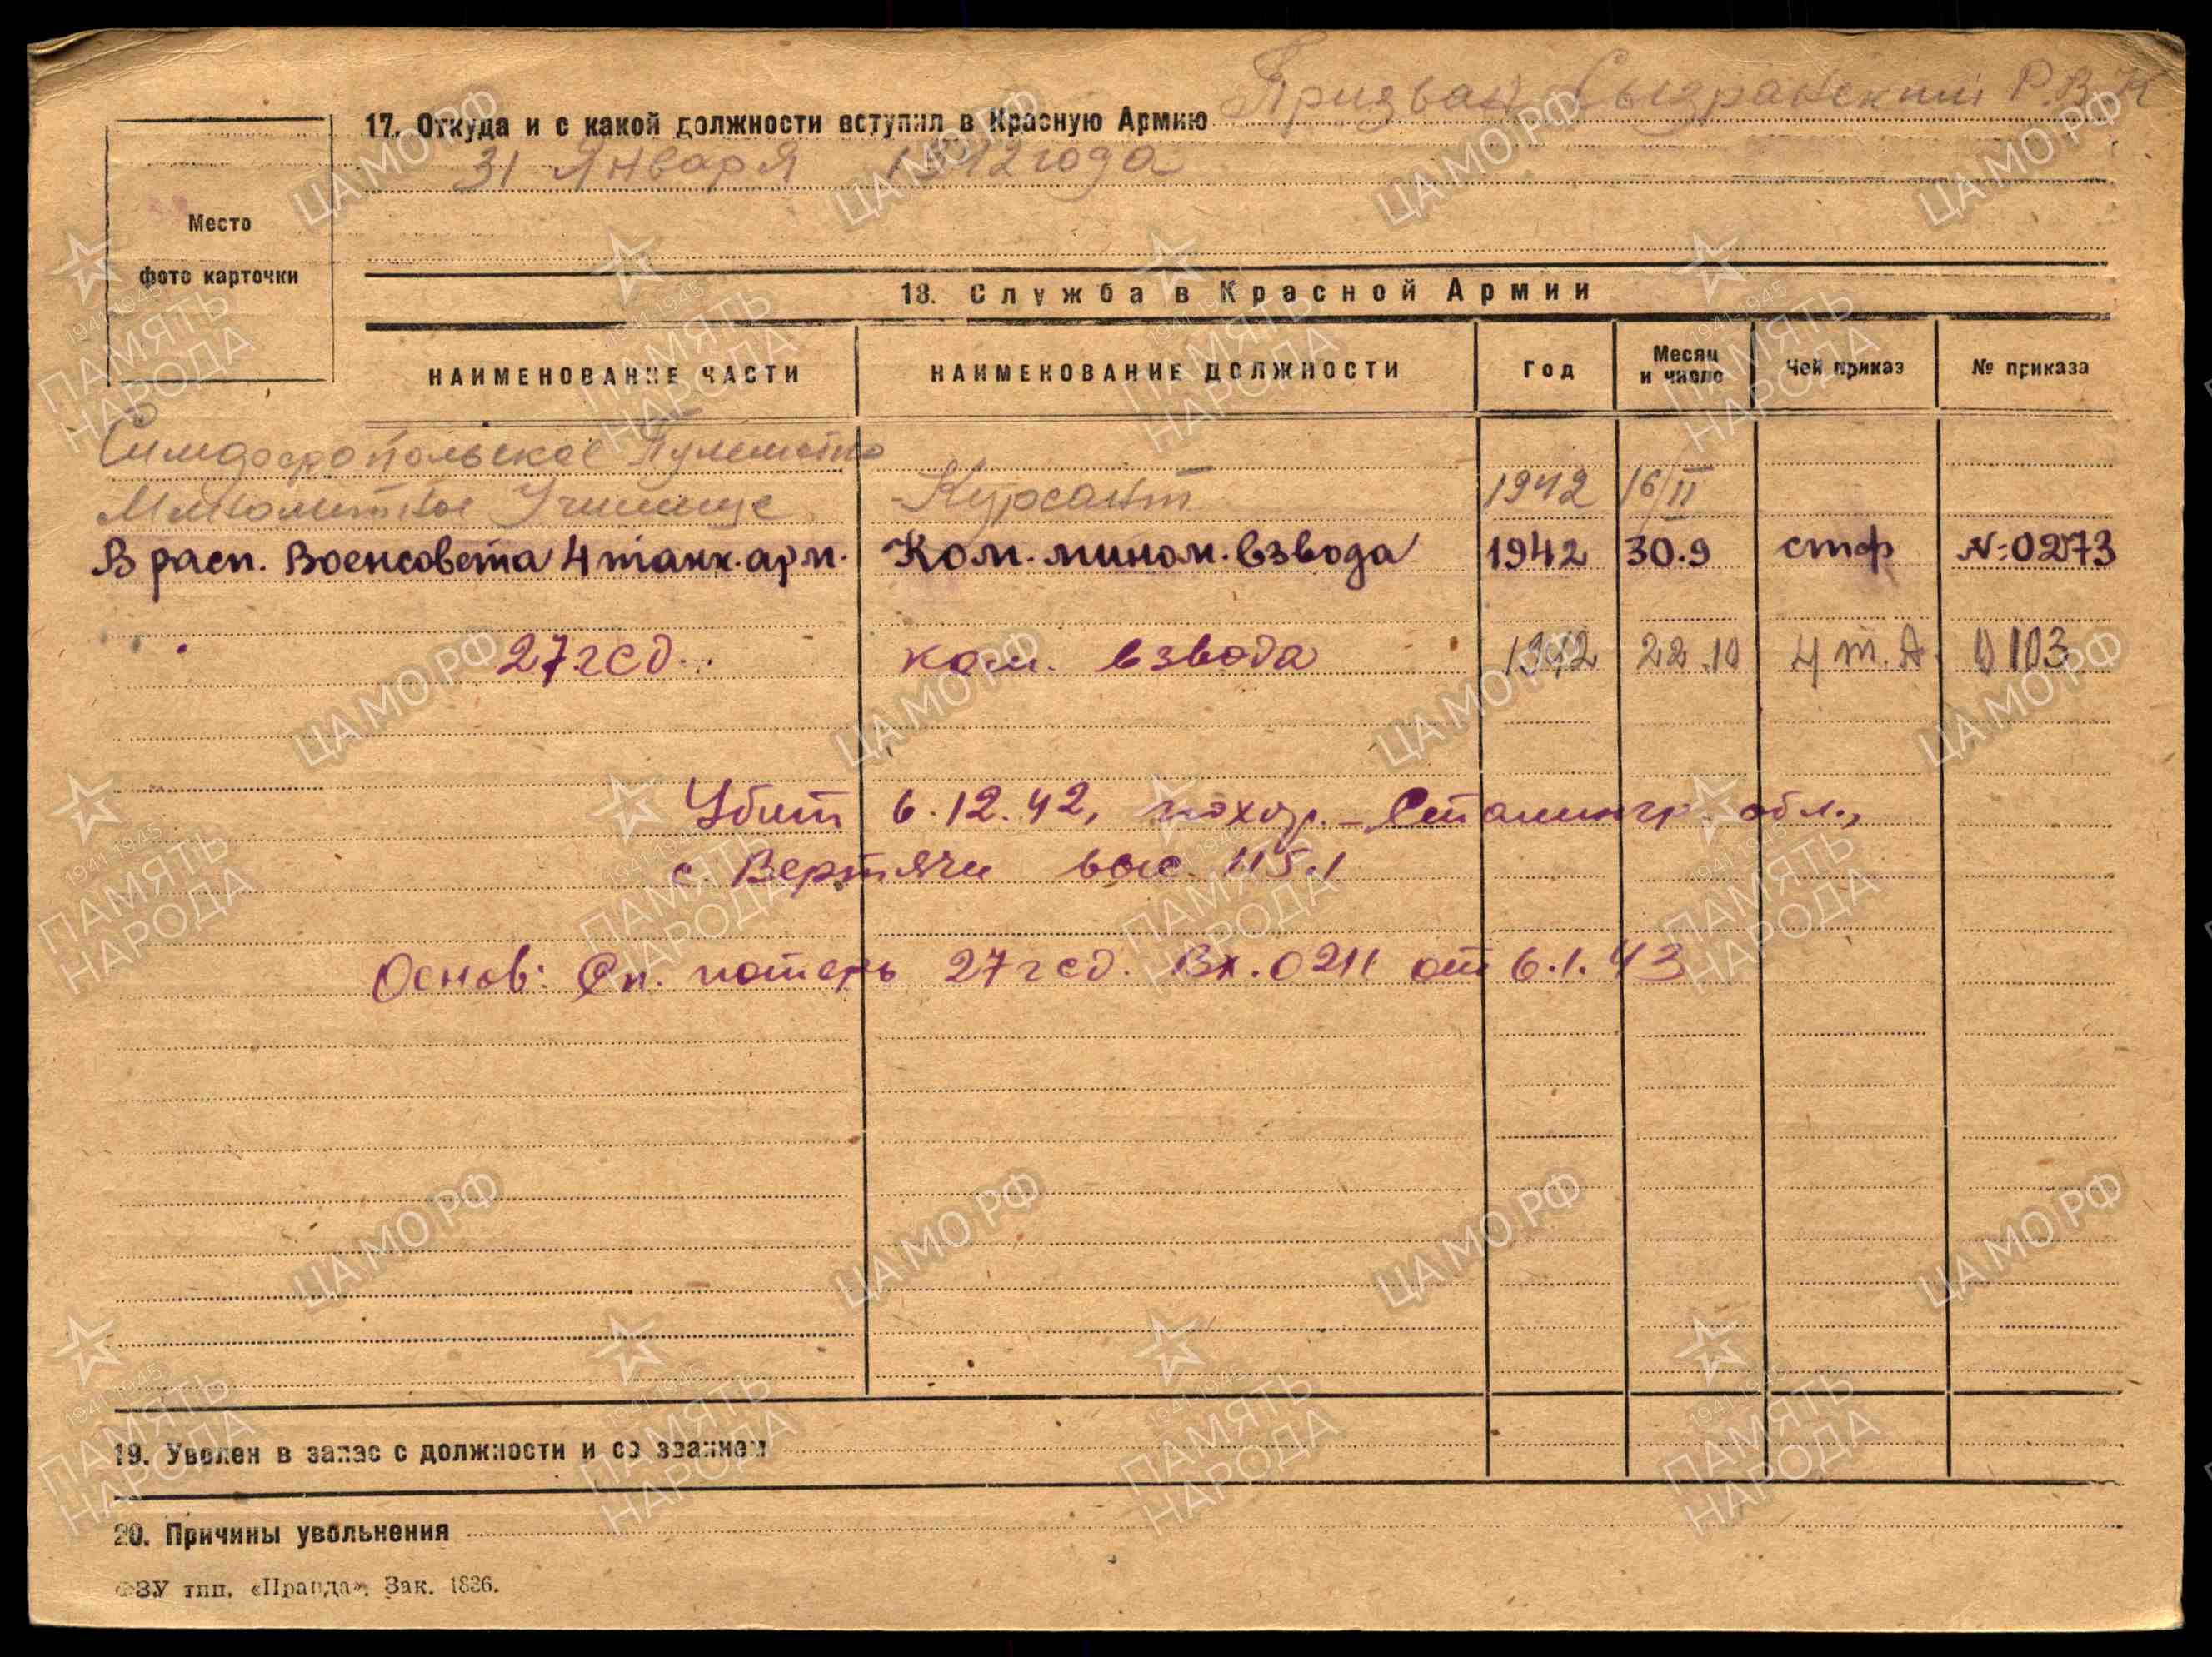 17. Откуда и с какой должности вступил в Красную Армию Призван Сызранский Р.В.К
31 Января 1942 года
Место
фото карточки
18. Служба в Красной Армии
НАИМЕНОВАНИЕ ЧАСТИ НАИМЕНОВАНИЕ ДОЛЖНОСТИ Год Месяц и число Чей приказ № приказа
Симферопольское Пулеметно
Минометное Училище Курсант 1942 16/II
В расп. Военсовета 4 танк. арм. Ком. мином. взвода 1942 30.9 стф №:0273
27 гсд. ком. взвода 1942 22.10 4 т.А. 0103
Убит 6.12.42, похор. - Сталингр. обл.,
с. Вертячи выс. 115.1
Основ: Сп. потерь 27 гсд. Вх. 0211 от 6.1.43
19. Уволен в запас с должности и со званием
20. Причины увольнения
ФЗУ тип. «Правда». Зак. 1836.
ЦАМО.РФ
1941-1945
ПАМЯТЬ
НАРОДА